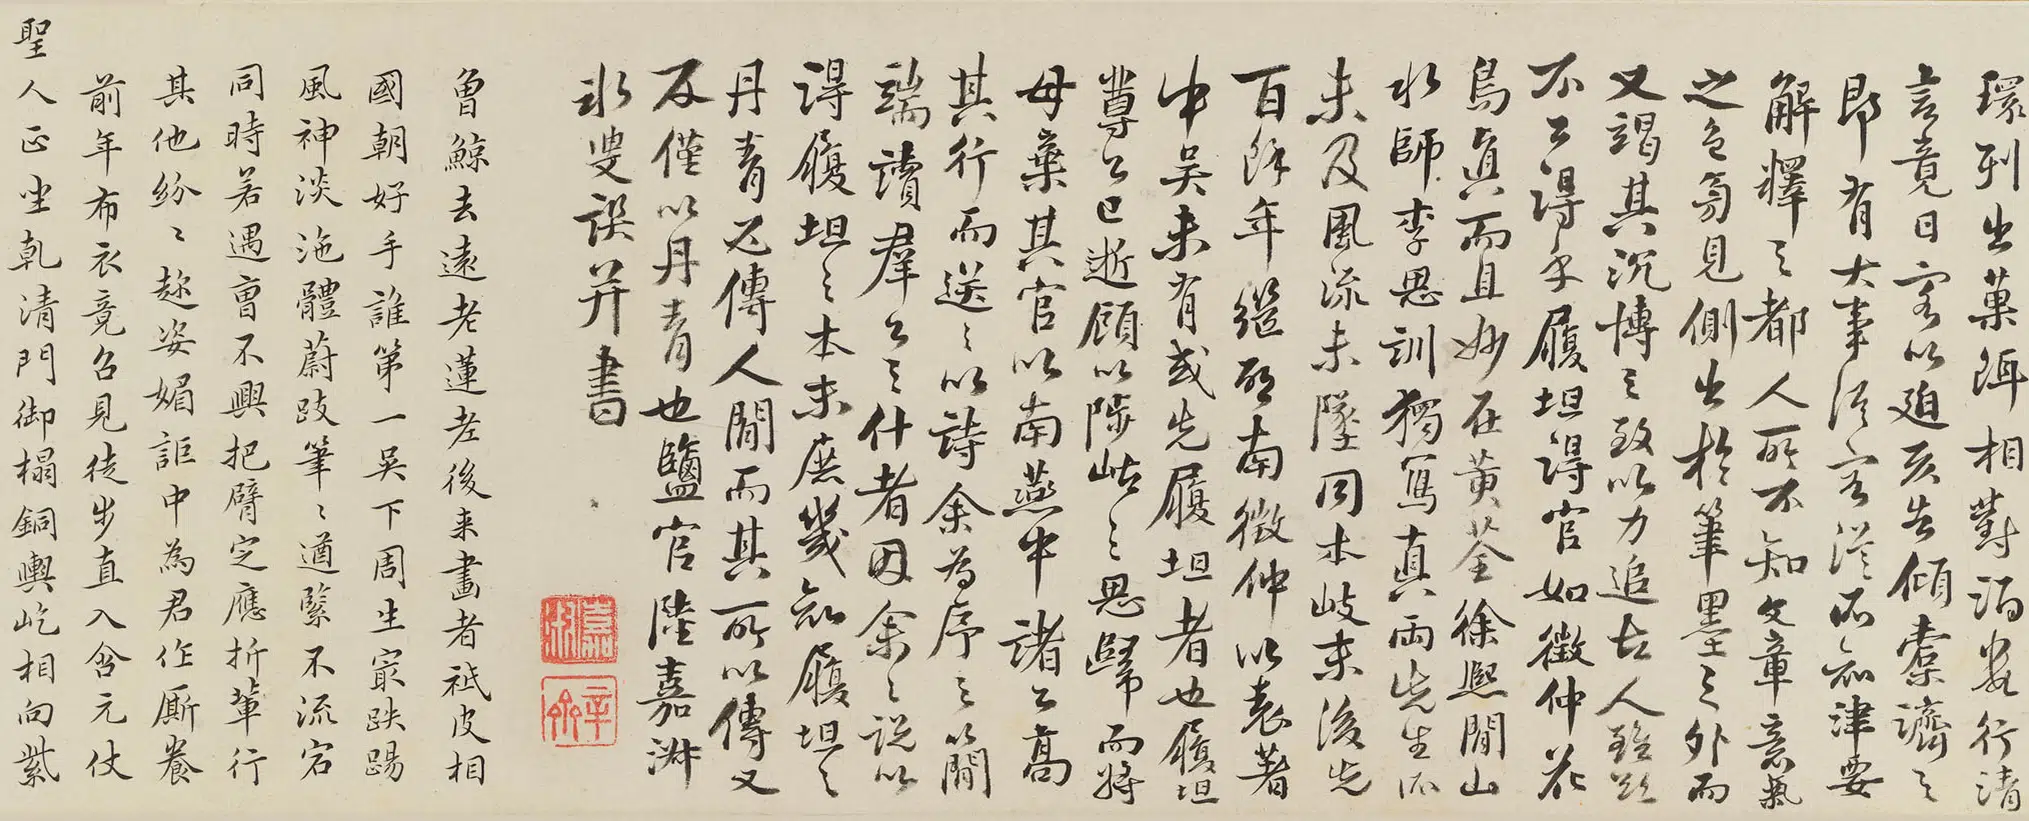 環列出菓餌相對酒數行清
言竟日客以迫亥告傾橐濟之
即有大事從容從不知津要
解釋之都人所不知文章意氣
之色芴見側出於筆墨之外而
又竭其沉博之致以力追古人雖欲
不工得乎履坦得官如徵仲花
鳥真而且妙在黃荃徐熙間山
水師李思訓獨寫真兩先生所
未及風流未墜同本歧末後先
百餘年繼
南徵仲以表著
中吳未有或先履坦者也履坦
尊公已逝顧以陟岵之思歸而將
母棄其官以南燕中諸公高
其行而送之以詩余為序之以簡
端讀群公之什者因余之說以
得履坦之本末庶幾知履坦之
丹青足傳人間而其所以傳又
不僅以丹青也鹽官陸嘉淑
冰叟譔并書
嘉淑
曾鯨去遠老蓮老後來畫者祗皮相
國朝好手誰第一吳下周生最跌踢
風神淡沲體蔚跂筆筆遒緊不流宕
同時若遇曾不興把臂定應折輩行
其他紛紛趂姿媚詎中為君作厮養
前年布衣竟召見徒步直入含元仗
聖人正坐乾清門御榻銅輿屹相向紫